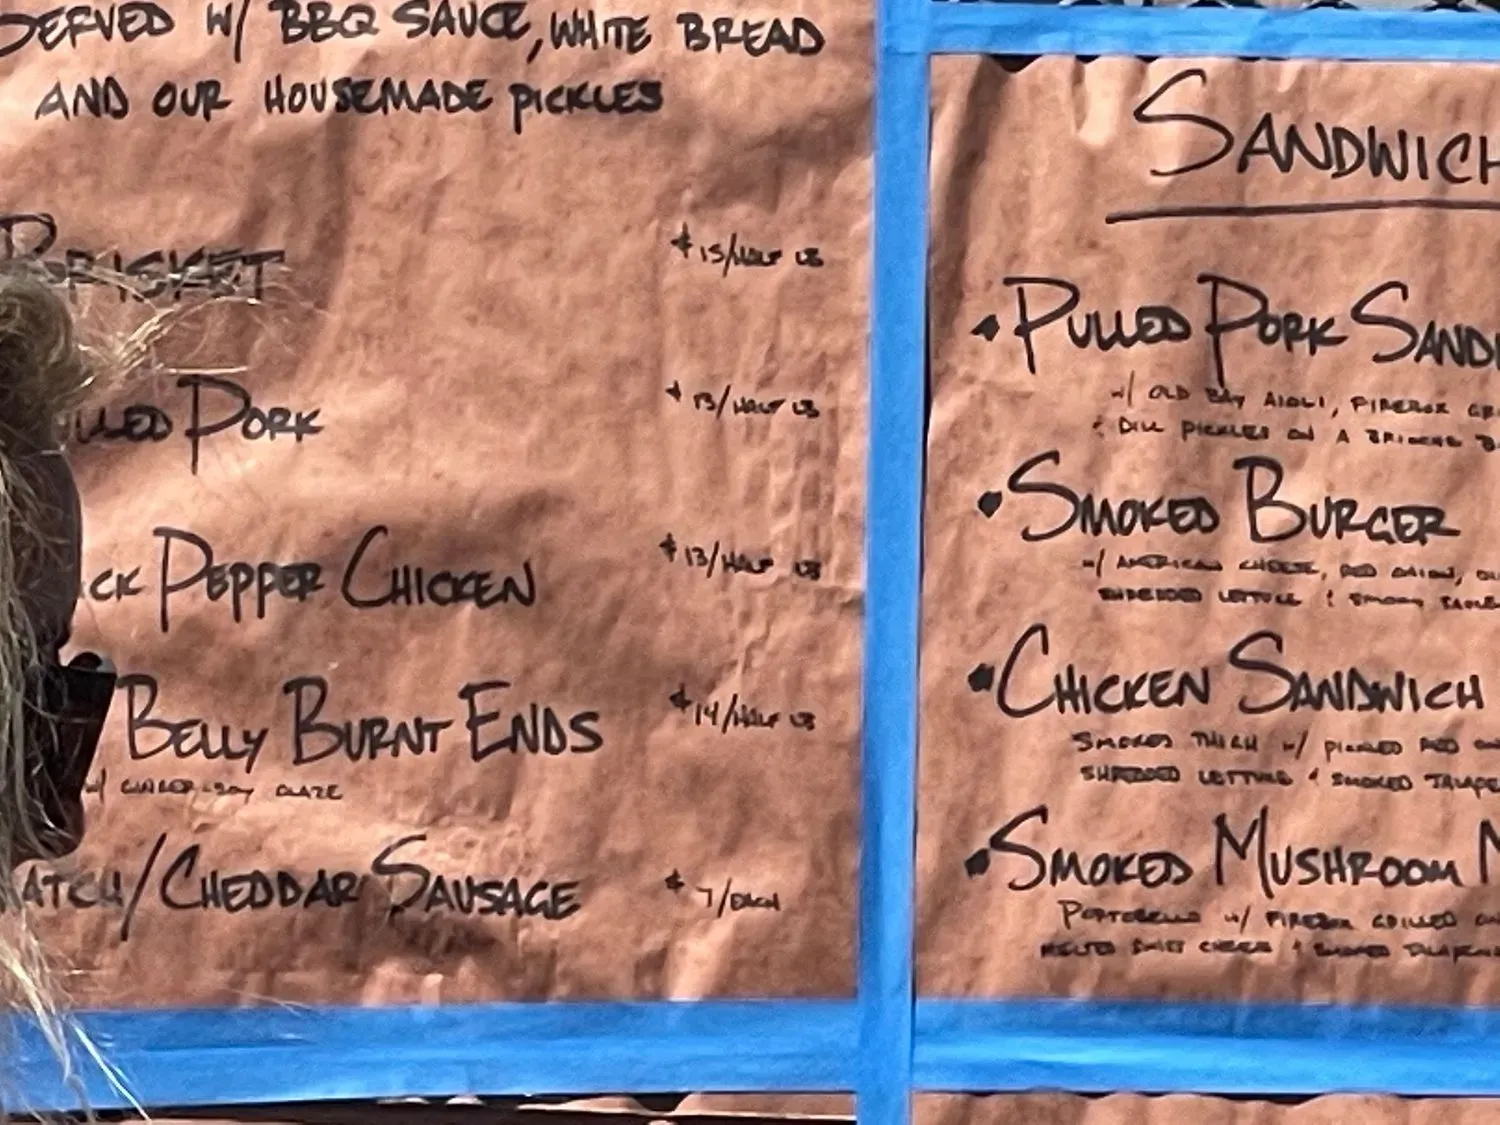 SERVED W/ BBQ SAUCE, WHITE BREAD
AND OUR HOUSEMADE PICKLES
BRISKET $15/HALF LB
LLED PORK $13/HALF LB
CK PEPPER CHICKEN $13/HALF LB
BELLY BURNT ENDS $14/HALF LB
W/ GINGER-SOY GLAZE
ATCH/CHEDDAR SAUSAGE $7/EACH
SANDWICH
• PULLED PORK SANDW
W/ OLD BAY AIOLI, FIREBOX GR
& DILL PICKLES ON A BRIOCHE B
• SMOKED BURGER
W/ AMERICAN CHEESE, RED ONION,
SHREDDED LETTUCE & SMOKY SAUCE
• CHICKEN SANDWICH
SMOKED THIGH W/ PICKLED RED ON
SHREDDED LETTUCE & SMOKED JALAPE
• SMOKED MUSHROOM M
PORTOBELLO W/ FIREBOX GRILLED ON
MELTED SWISS CHEESE & SMOKED JALAPEN